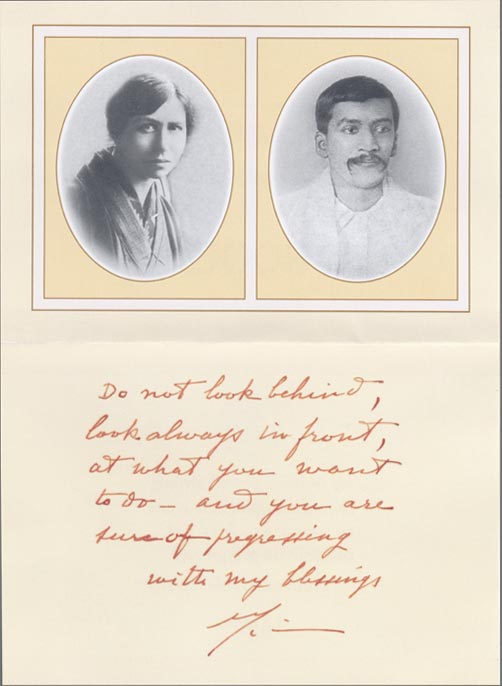 Do not look behind,
look always in front,
at what you want
to do – and you are
sure of progressing
with my blessings